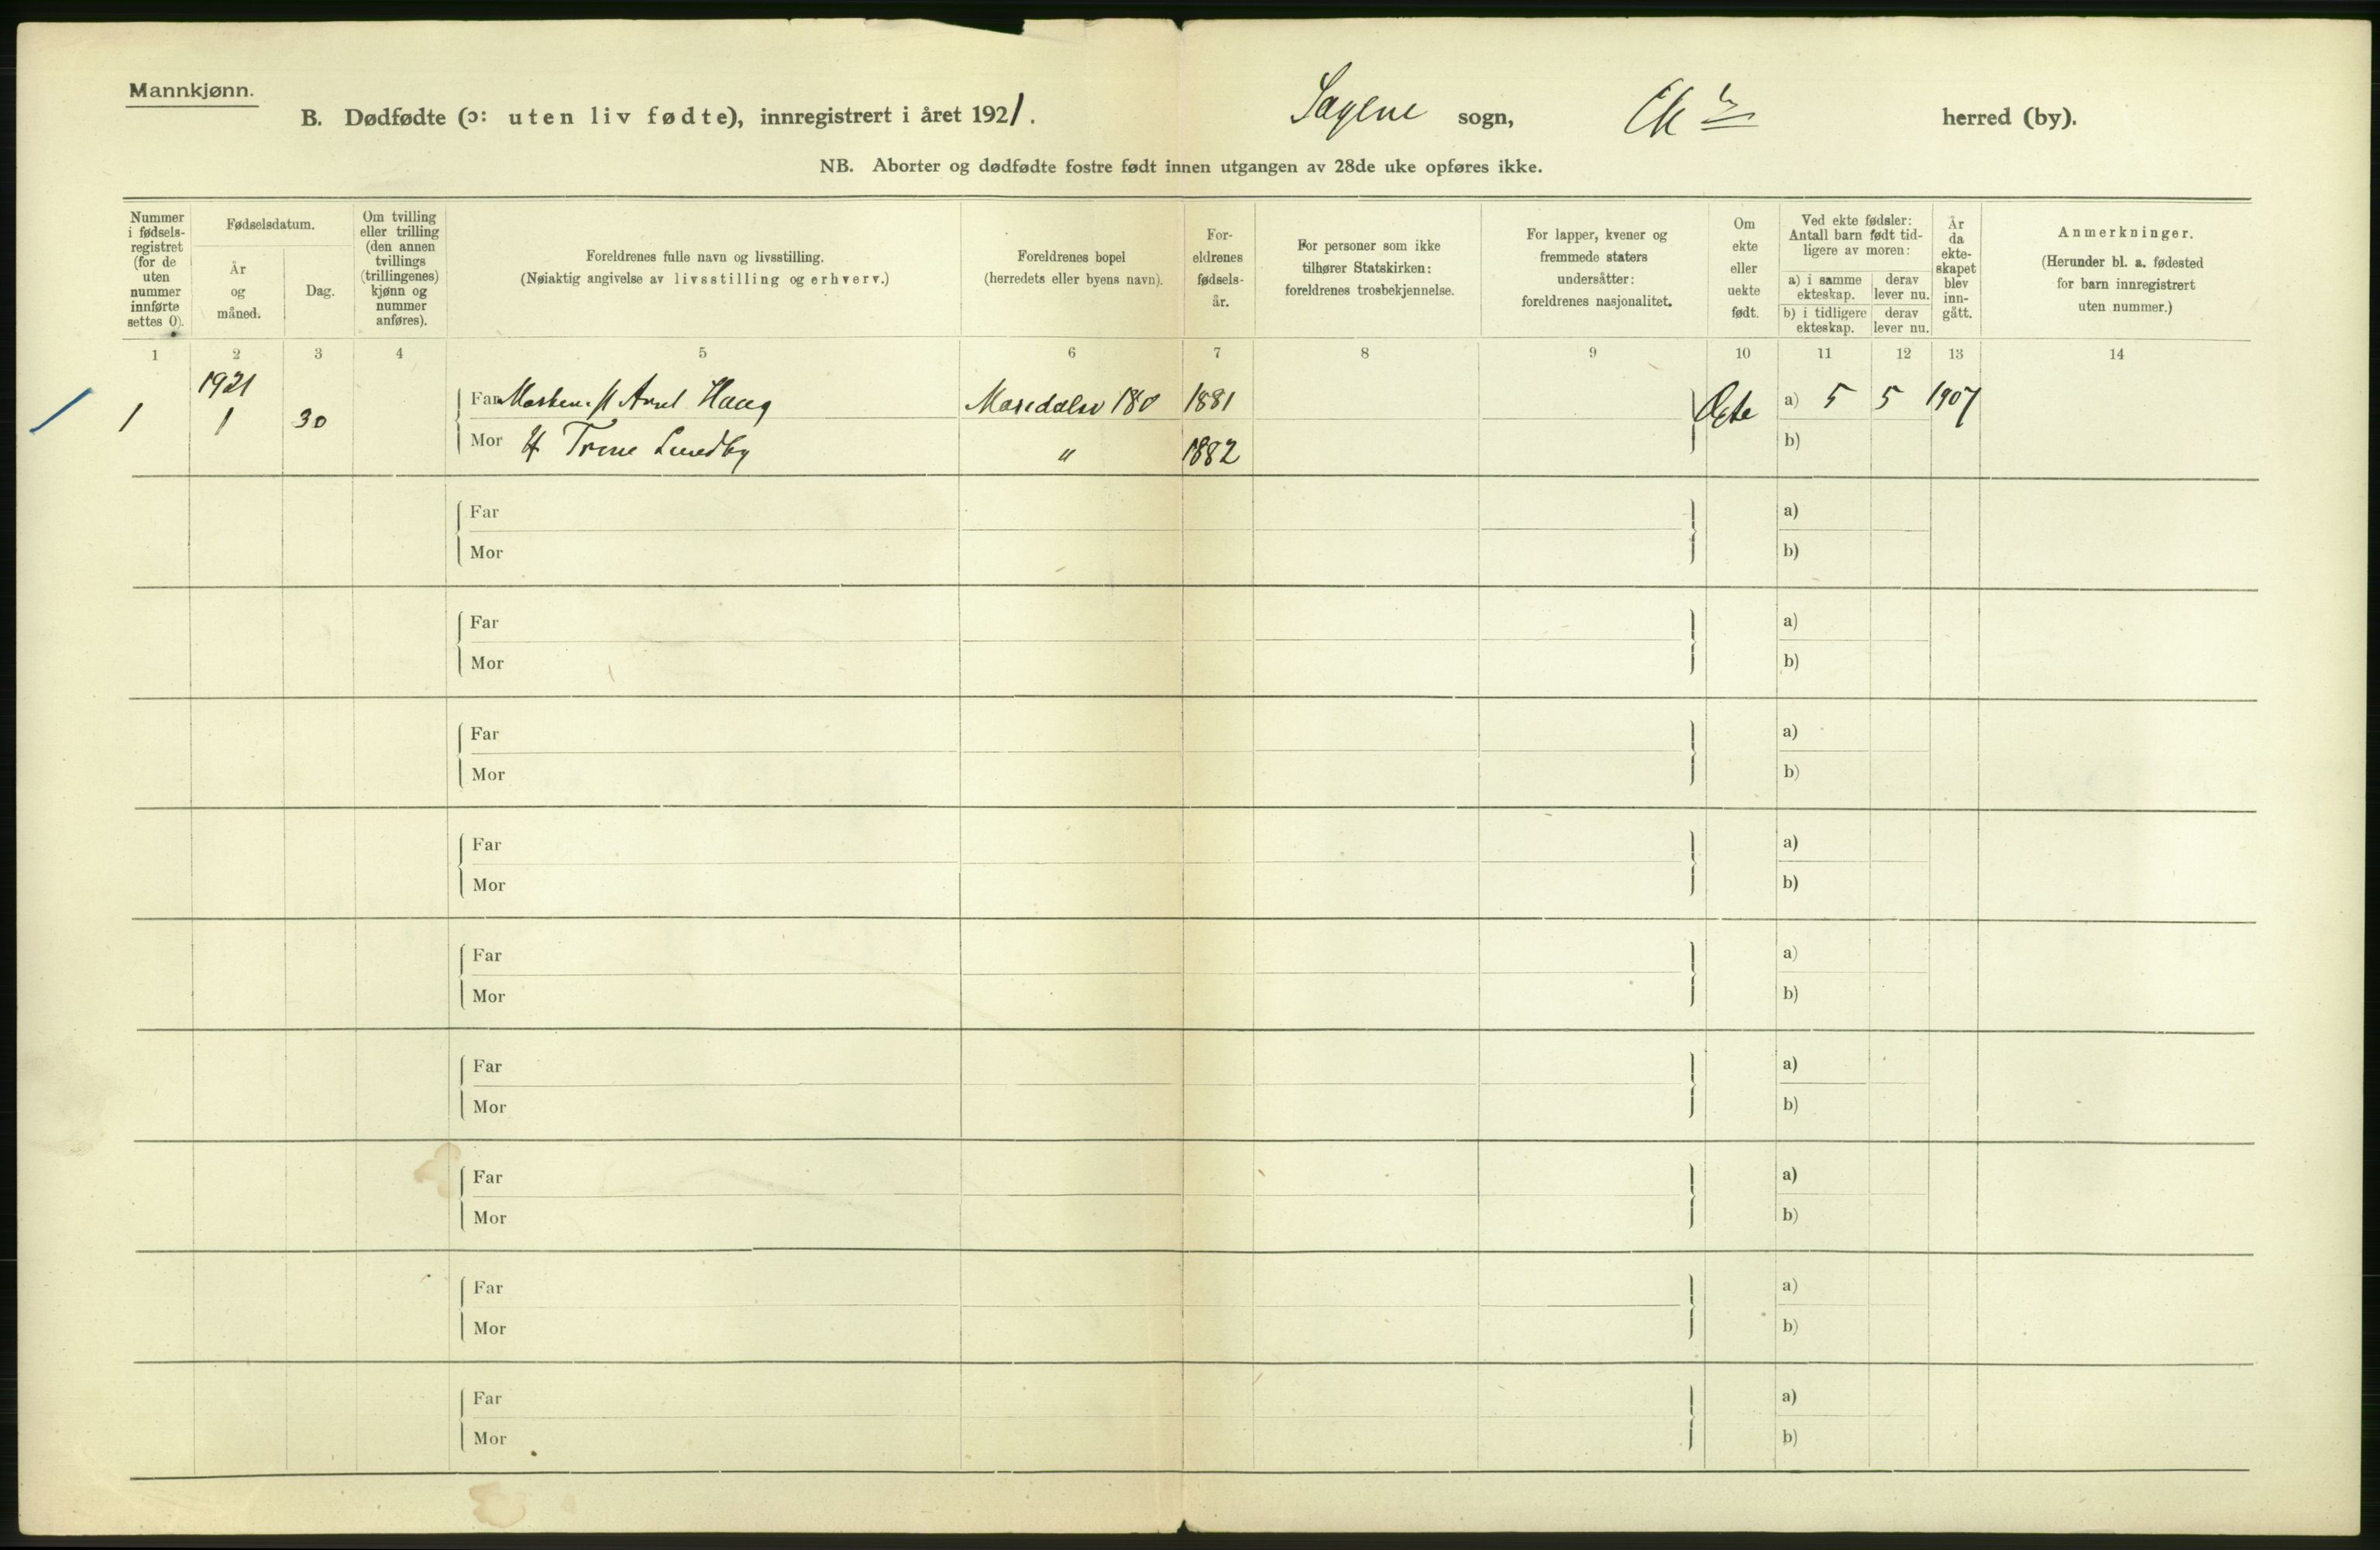 Mannkjønn.
B. Dødfødte (ɔ: uten liv fødte), innregistrert i året 1921. Sagene sogn, Chr herred (by).
NB. Aborter og dødfødte fostre født innen utgangen av 28de uke opføres ikke.
Nummer
i fødsels-
registret
(for de
uten
nummer
innførte
settes 0).
Fødselsdatum.
År
og
måned.
Dag.
Om tvilling
eller trilling
(den annen
tvillings
(trillingenes)
kjønn og
nummer
anføres).
Foreldrenes fulle navn og livsstilling.
(Nøiaktig angivelse av livsstilling og erhverv.)
Foreldrenes bopel
(herredets eller byens navn).
For-
eldrenes
fødsels-
år.
For personer som ikke
tilhører Statskirken:
foreldrenes trosbekjennelse.
For lapper, kvener og
fremmede staters
undersåtter:
foreldrenes nasjonalitet.
Om
ekte
eller
uekte
født.
Ved ekte fødsler:
Antall barn født tid-
ligere av moren:
a) i samme
ekteskap.
derav
lever nu.
b) i tidligere
ekteskap.
derav
lever nu.
År
da
ekte-
skapet
blev
inn-
gått.
Anmerkninger.
(Herunder bl. a. fødested
for barn innregistrert
uten nummer.)
1 2 3 4 5 6 7 8 9 10 11 12 13 14
1921
1 1 30
Far Haug 180 1881 Ægte a) 5 5 1907
Mor Lundby " 1882 b)
Far a)
Mor b)
Far a)
Mor b)
Far a)
Mor b)
Far a)
Mor b)
Far a)
Mor b)
Far a)
Mor b)
Far a)
Mor b)
Far a)
Mor b)
Far a)
Mor b)